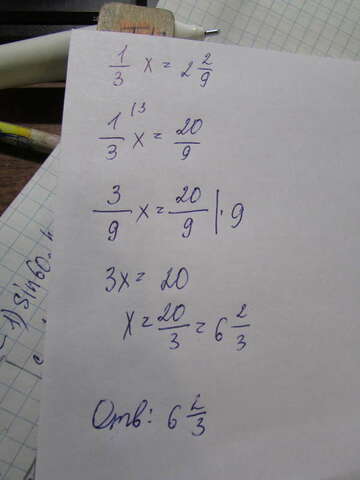 1/3 x = 2 2/9
1/3 |3 x = 20/9
3/9 x = 20/9 | · 9
3x = 20
x = 20/3 = 6 2/3
Отв: 6 2/3
1) sin 60